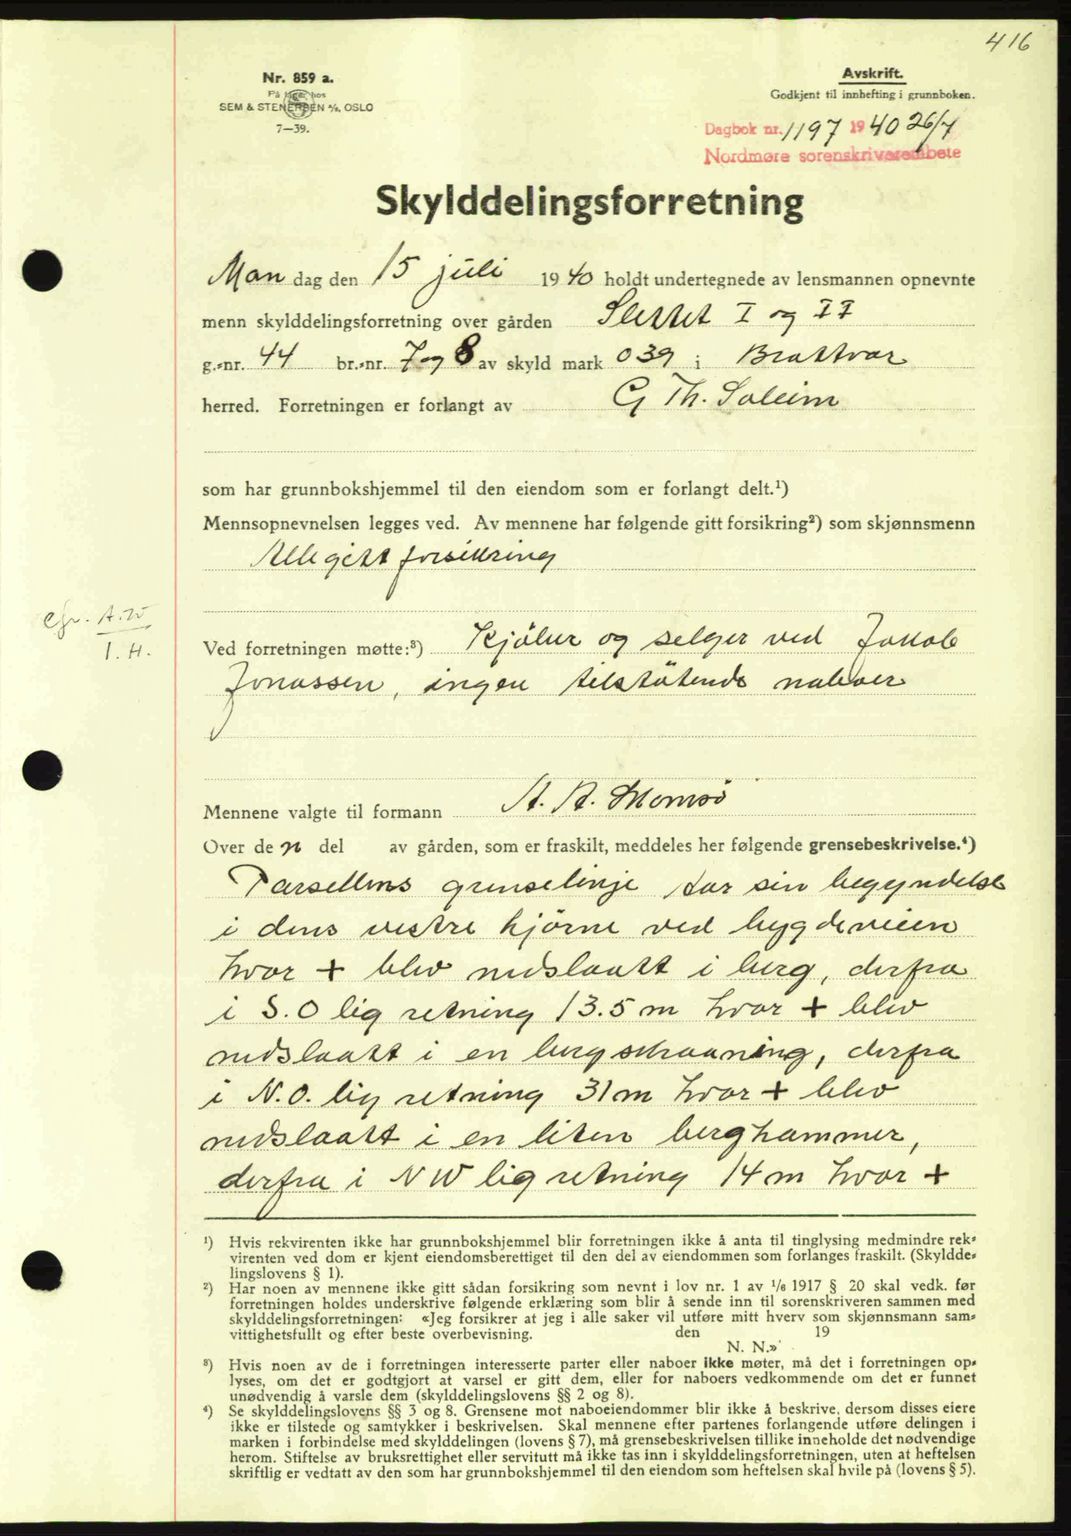 416
Nr. 859 a.
På lager hos
SEM & STENERSEN A/S, OSLO
7—39.
Avskrift.
Godkjent til innhefting i grunnboken.
Dagbok nr. 1197 1940 26/7
Nordmøre sorenskriverembete
Skylddelingsforretning
Man dag den 15 juli 1940 holdt undertegnede av lensmannen opnevnte
menn skylddelingsforretning over gården Slettet I og II
g.-nr. 44 br.-nr. 7 og 8 av skyld mark 0 39 i Brattvær
herred. Forretningen er forlangt av G Th. Soleim
som har grunnbokshjemmel til den eiendom som er forlangt delt.¹)
Mennsopnevnelsen legges ved. Av mennene har følgende gitt forsikring²) som skjønnsmenn
Alle gitt forsikring
cfr. A.N
I.H.
Ved forretningen møtte:³) Kjöber og selger ved Jakob
Jonassen, ingen tilstötende naboer
Mennene valgte til formann A. A.
Over de n del av gården, som er fraskilt, meddeles her følgende grensebeskrivelse.⁴)
Parsellens grenselinje tar sin begyndelse
i dens vestre hjörne ved bygdeveien
hvor + blev nedslaatt i berg, derfra
i S.O lig retning 13.5 m hvor + blev
nedslaatt i en bergskraaning, derfra
i N.O. lig retning 31 m hvor + blev
nedslaatt i en liten berghammer,
derfra i NW lig retning 14 m hvor +
¹) Hvis rekvirenten ikke har grunnbokshjemmel blir forretningen ikke å anta til tinglysing medmindre rek-
virenten ved dom er kjent eiendomsberettiget til den del av eiendommen som forlanges fraskilt. (Skyldde-
lingslovens § 1).
²) Har noen av mennene ikke gitt sådan forsikring som nevnt i lov nr. 1 av 1/6 1917 § 20 skal vedk. før
forretningen holdes underskrive følgende erklæring som blir å sende inn til sorenskriveren sammen med
skylddelingsforretningen: «Jeg forsikrer at jeg i alle saker vil utføre mitt hverv som skjønnsmann sam-
vittighetsfullt og efter beste overbevisning. den 19
N. N.»
³) Hvis noen av de i forretningen interesserte parter eller naboer ikke møter, må det i forretningen op-
lyses, om det er godtgjort at varsel er gitt dem, eller for naboers vedkommende om det er funnet
unødvendig å varsle dem (skylddelingslovens §§ 2 og 8).
⁴) Se skylddelingslovens §§ 3 og 8. Grensene mot naboeiendommer blir ikke å beskrive, dersom disses eiere
ikke er tilstede og samtykker i beskrivelsen. Skal mennene efter partenes forlangende utføre delingen i
marken i forbindelse med skylddelingen (lovens § 7), må grensebeskrivelsen tillike inneholde det nødvendige
herom. Stiftelse av bruksrettighet eller servitutt må ikke tas inn i skylddelingsforretningen, uten at heftelsen
skriftlig er vedtatt av den som har grunnbokshjemmel til den eiendom som heftelsen skal hvile på (lovens § 5).